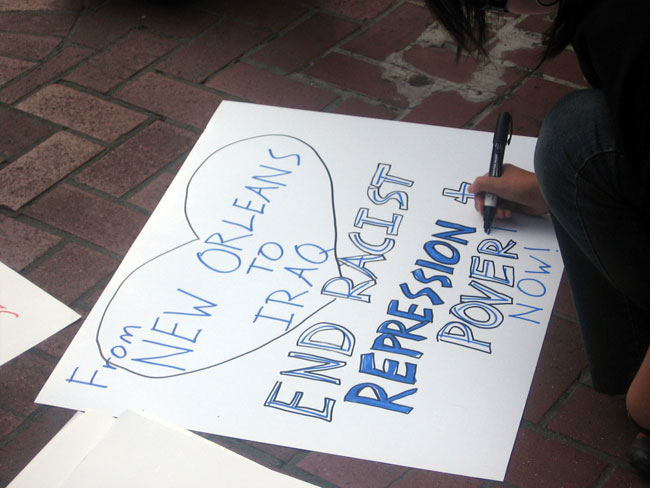 From
NEW ORLEANS
TO
IRAQ
END RACIST
REPRESSION +
POVERT
NOW!